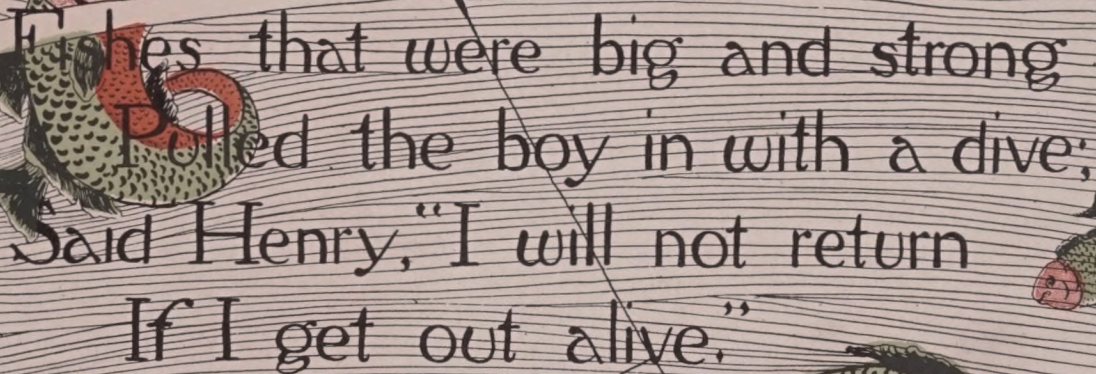 Fishes that were big and strong
Pulled the boy in with a dive;
Said Henry, "I will not return
If I get out alive."